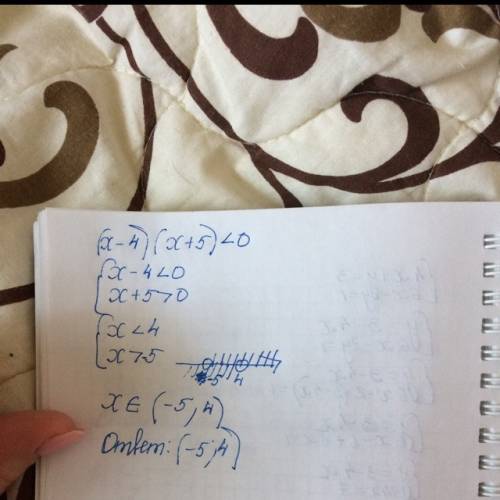 (x-4)(x+5)<0
{x-4<0
x+5>0
{x<4
x>-5
-5 4
x∈(-5;4)
Ответ: (-5;4)